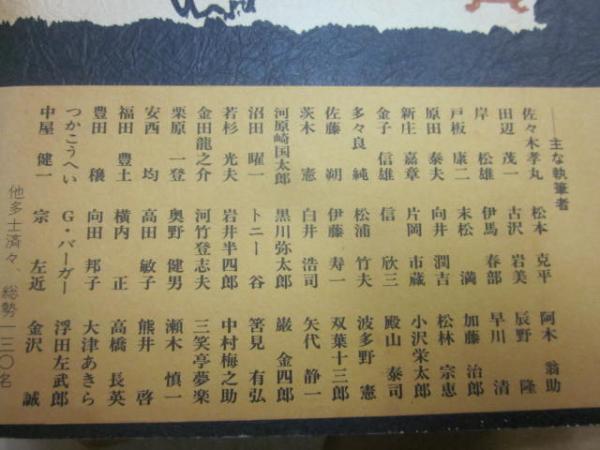 ——主な執筆者
佐々木孝丸　松本　克平　阿木　翁助
田辺　茂一　古沢　岩美　辰野　隆
岸　松雄　伊馬　春部　早川　清
戸板　康二　末松　満　加藤　治郎
原田　泰夫　向井　潤吉　松林　宗恵
新庄　嘉章　片岡　市蔵　小沢栄太郎
金子　信雄　信　欣三　殿山　泰司
多々良　純　松浦　竹夫　波多野　憲
佐藤　朔　伊藤　寿一　双葉十三郎
茨木　憲　白井　浩司　矢代　静一
河原崎国太郎　黒川弥太郎　巌　金四郎
沼田　曜一　トニー　谷　筈見　有弘
若杉　光夫　岩井半四郎　中村梅之助
金田龍之介　河竹登志夫　三笑亭夢楽
栗原　一登　奥野　健男　瀬木　慎一
安西　均　高田　敏子　熊井　啓
福田　豊土　横内　正　高橋　長英
豊田　穣　向田　邦子　大津あきら
つかこうへい　G・バーガー　浮田左武郎
中屋　健一　宗　左近　金沢　誠
他多士済々、総勢一三〇名